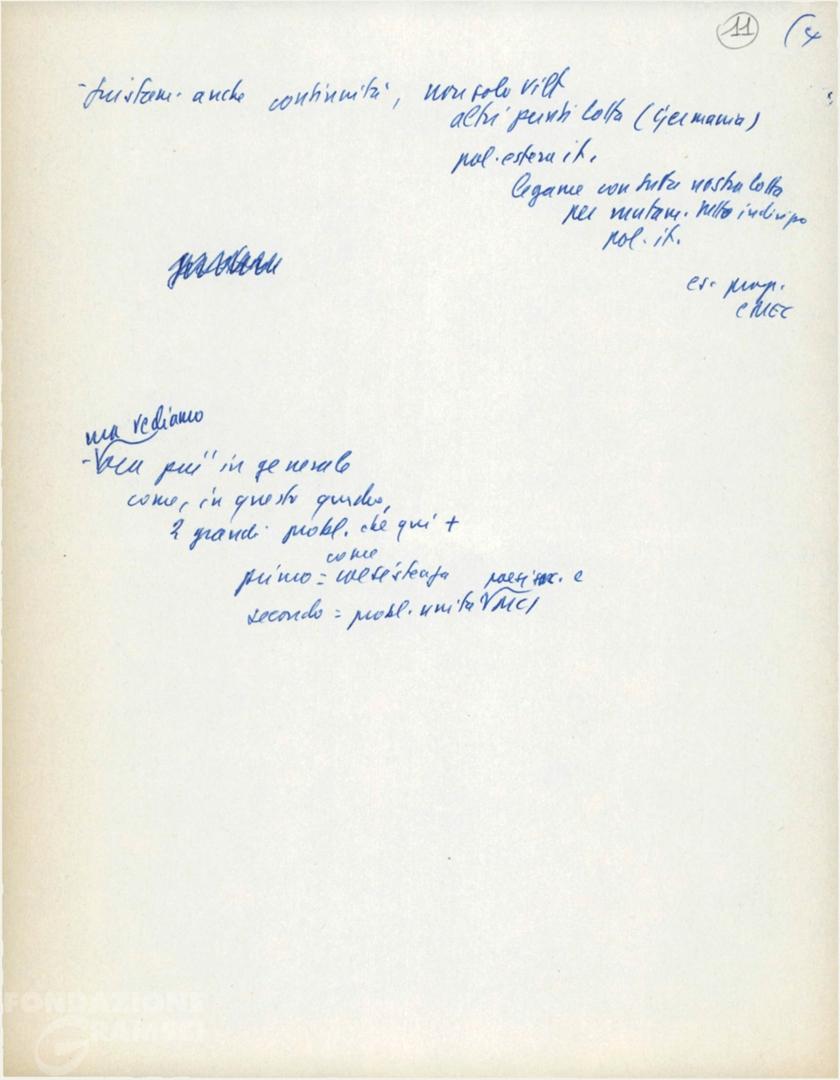 11 (4
- anche continuità, non solo
altri punti lotta (Germania)
pol. estera it.
legame con tutta nostra lotta
per mutam. indirizzo
pol. it.
es. prop.
ma vediamo
- più in generale
come, in questo quadro,
2 grandi probl. che qui +
come
primo = coesistenza e
secondo = probl. unità MCI
FONDAZIONE
GRAMSCI